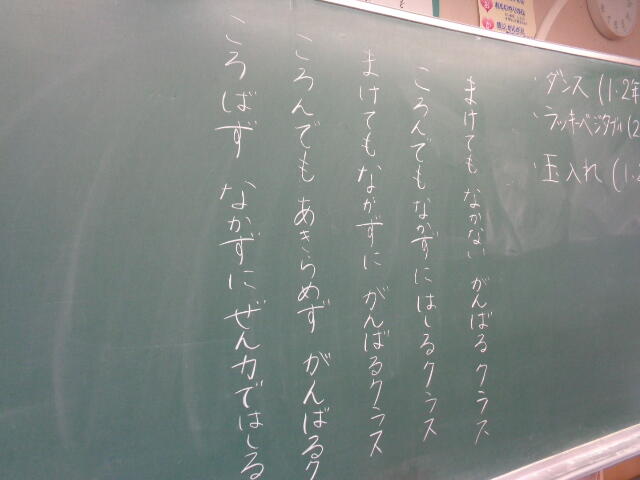 ・ダンス(1・2年
・ラッキーベジタブル(2
・玉入れ(1・2
まけても なかない がんばる クラス
ころんでもなかずにはしるクラス
まけてもなかずに がんばるクラス
ころんでも あきらめず がんばるク
ころばず なかずにぜん力ではしる